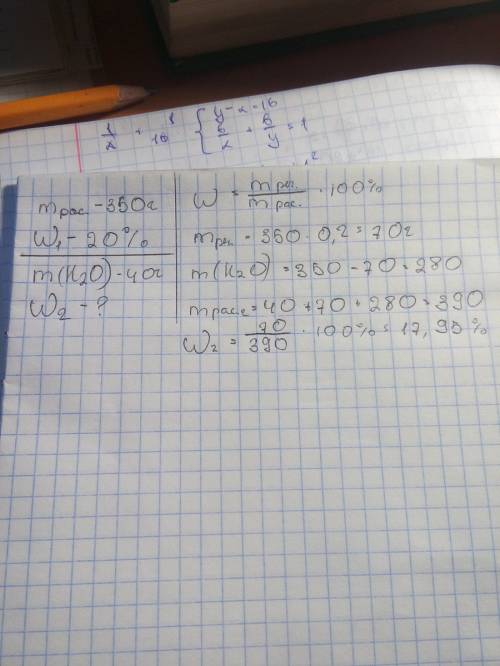 1/x + 1/10 { y-x=16
6/x + 6/y = 1
2
m рас. - 350г
W₁ - 20%
m(H₂O) - 40г
W₂ - ?
W = m рв. / m рас. · 100%
m рв. - 350 · 0,2 = 70г
m(H₂O) = 350 - 70 = 280
m рас₂ = 40 + 70 + 280 = 390
W₂ = 70/390 · 100% = 17,95%